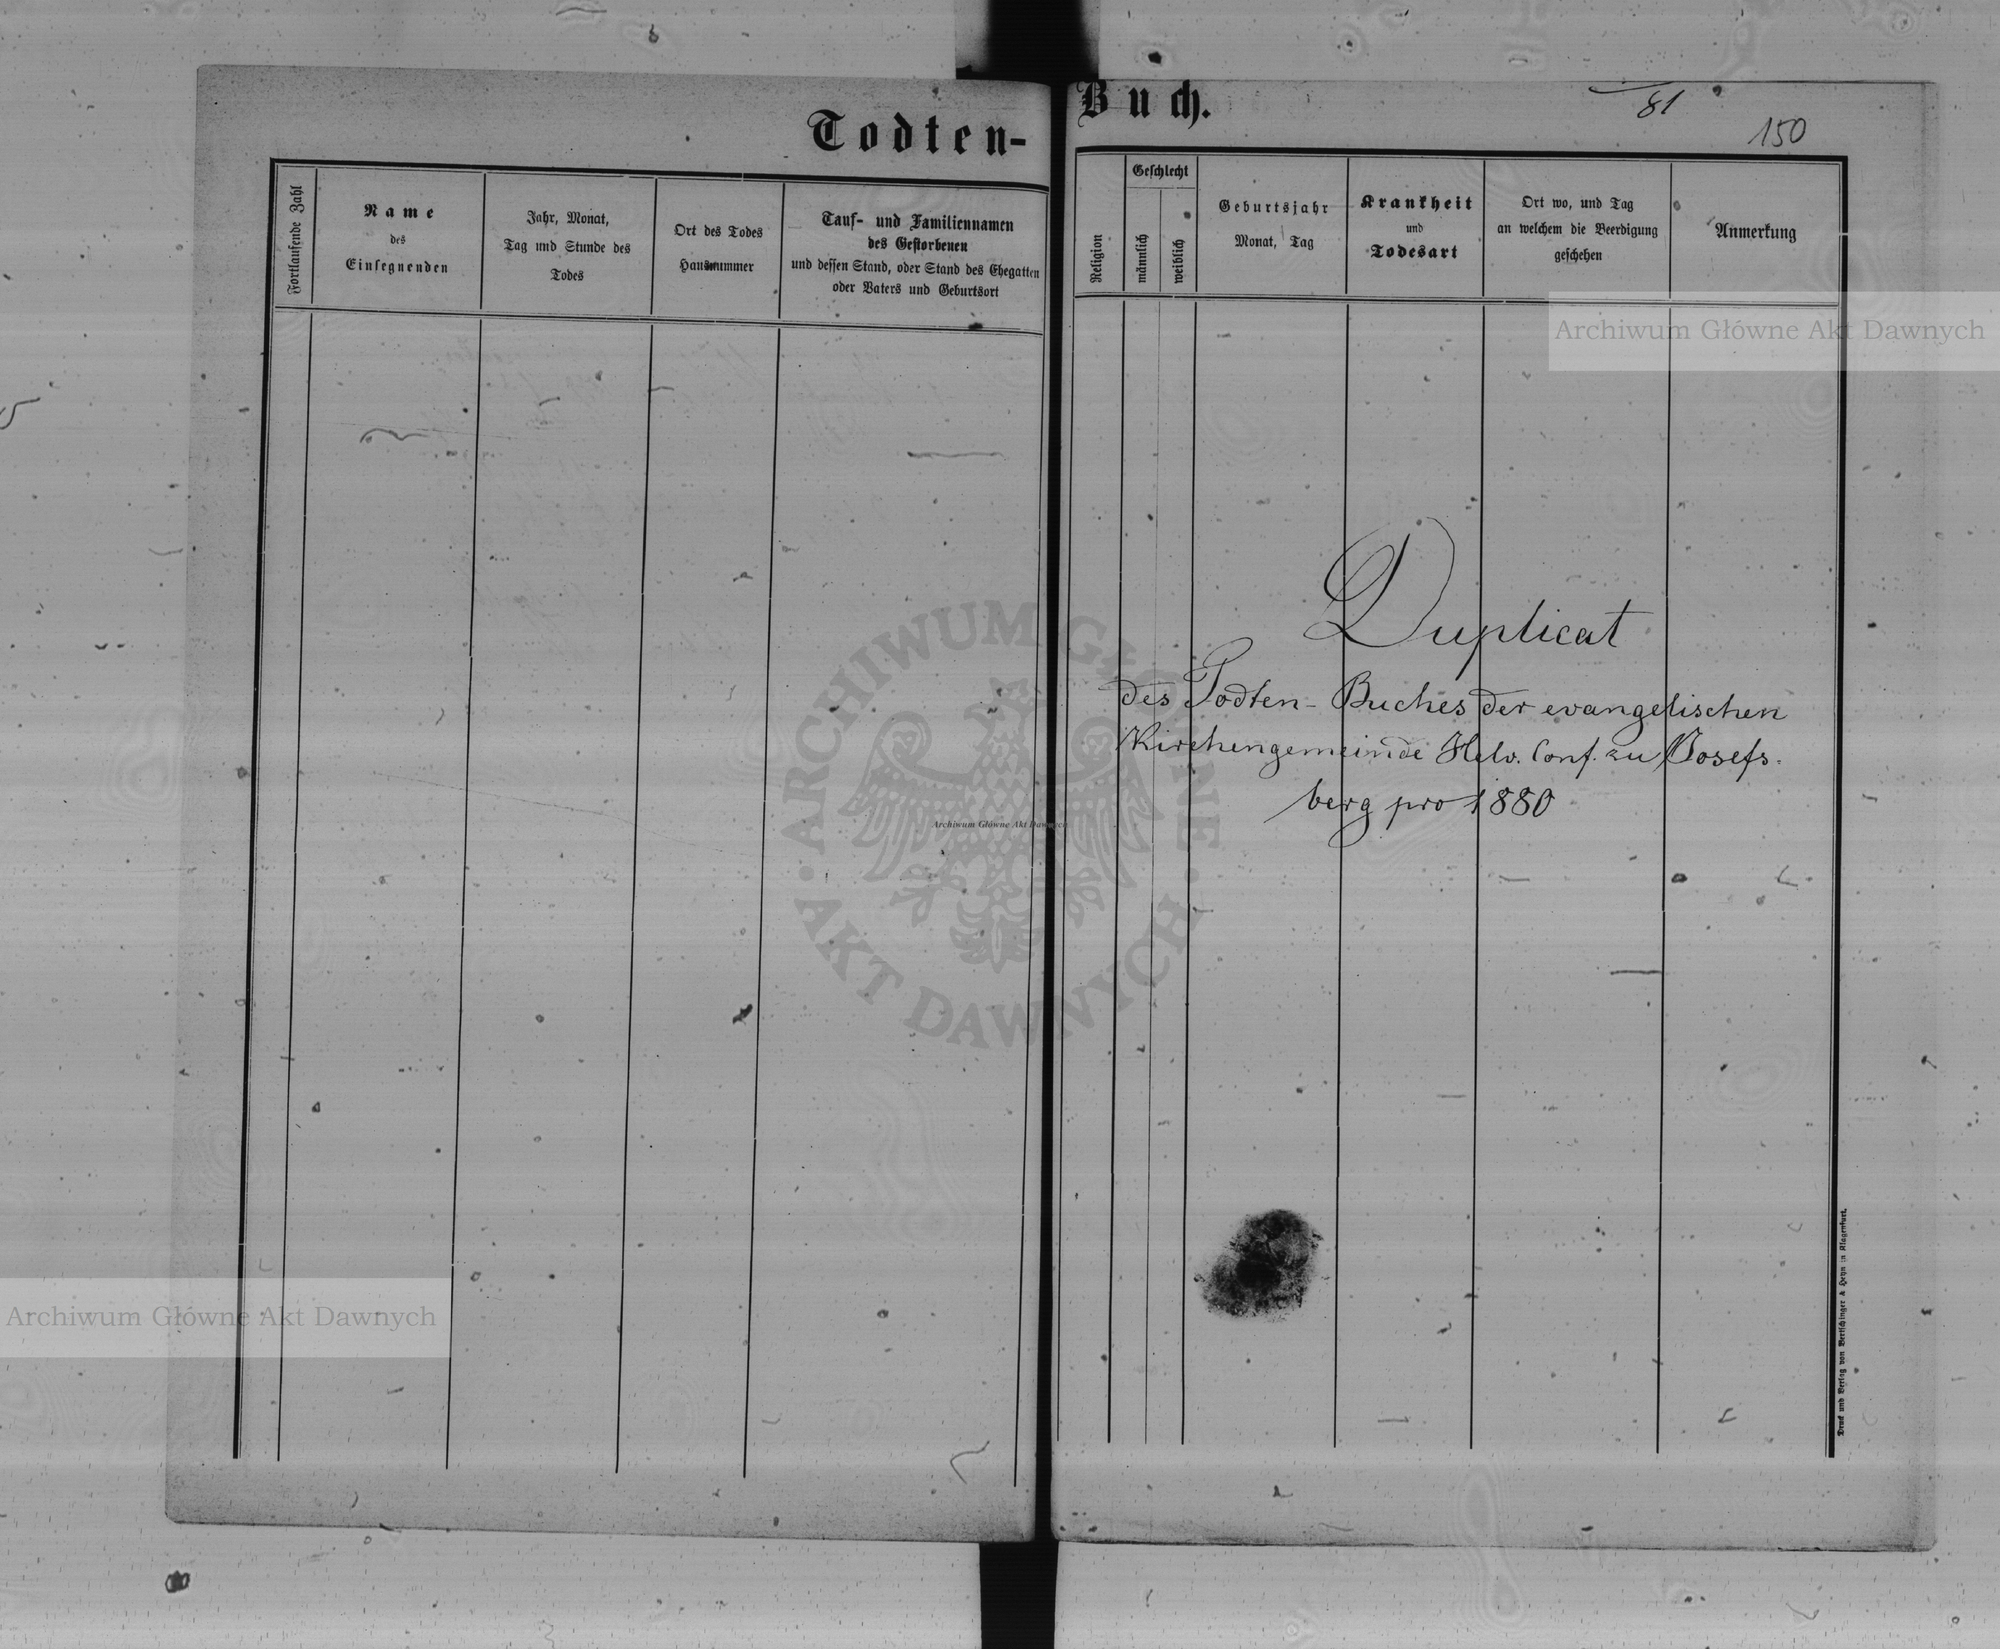 Todten-
Fortlaufende Zahl
Name
des
Einsegnenden
Jahr, Monat,
Tag und Stunde des
Todes
Ort des Todes
Hausnummer
Tauf- und Familiennamen
des Gestorbenen
und dessen Stand, oder Stand des Ehegatten
oder Vaters und Geburtsort
Buch.
81
150
Religion
Geschlecht
männlich
weiblich
Geburtsjahr
Monat, Tag
Krankheit
und
Todesart
Ort wo, und Tag
an welchem die Beerdigung
geschehen
Anmerkung
Archiwum Główne Akt Dawnych
Duplicat
des Todten-Buches der evangelischen
Kirchengemeinde Helv. Conf. zu Josefs-
berg pro 1880
ARCHIWUM GŁÓWNE
AKT DAWNYCH
Archiwum Główne Akt Dawnych
Archiwum Główne Akt Dawnych
Druck und Verlag von Bertschinger & Heyn in Klagenfurt.